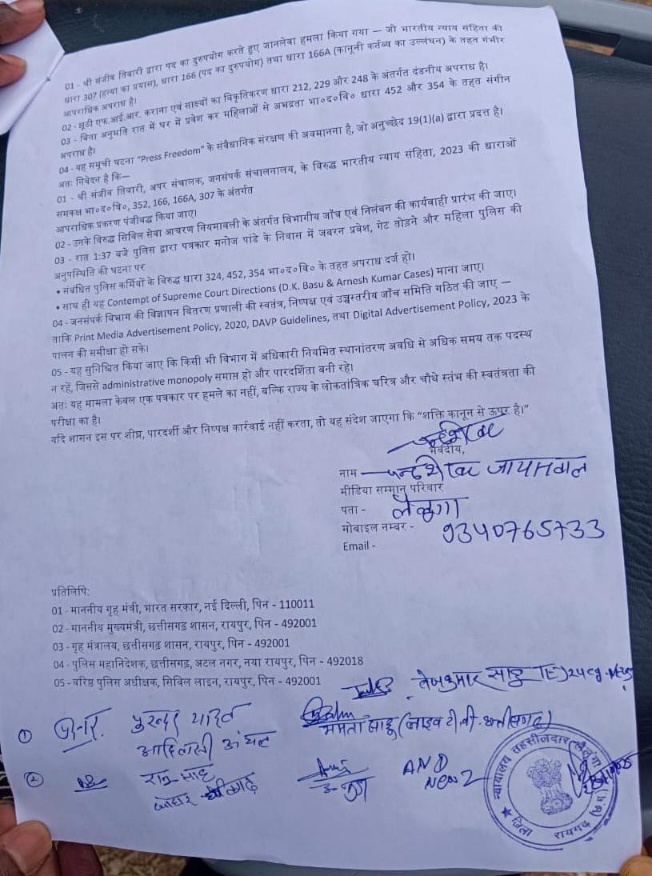 01 - श्री संजीव तिवारी द्वारा पद का दुरुपयोग करते हुए जानलेवा हमला किया गया — जो भारतीय न्याय संहिता की
धारा 307 (हत्या का प्रयास), धारा 166 (पद का दुरुपयोग) तथा धारा 166A (कानूनी कर्तव्य का उल्लंघन) के तहत गंभीर
आपराधिक अपराध है।
02 - झूठी एफ.आई.आर. कराना एवं साक्ष्यों का विकृतिकरण धारा 212, 229 और 248 के अंतर्गत दंडनीय अपराध है।
03 - बिना अनुमति रात में घर में प्रवेश कर महिलाओं से अभद्रता भा०द०वि० धारा 452 और 354 के तहत संगीन
अपराध है।
04 - यह समूची घटना "Press Freedom" के संवैधानिक संरक्षण की अवमानना है, जो अनुच्छेद 19(1)(a) द्वारा प्रदत्त है।
अतः निवेदन है कि—
01 - श्री संजीव तिवारी, अपर संचालक, जनसंपर्क संचालनालय, के विरुद्ध भारतीय न्याय संहिता, 2023 की धाराओं
समकक्ष भा०द०वि०, 352, 166, 166A, 307 के अंतर्गत
आपराधिक प्रकरण पंजीबद्ध किया जाए।
02 - उनके विरुद्ध सिविल सेवा आचरण नियमावली के अंतर्गत विभागीय जाँच एवं निलंबन की कार्यवाही प्रारंभ की जाए।
03 - रात 1:37 बजे पुलिस द्वारा पत्रकार मनोज पांडे के निवास में जबरन प्रवेश, गेट तोड़ने और महिला पुलिस की
अनुपस्थिति की घटना पर
• संबंधित पुलिस कर्मियों के विरुद्ध धारा 324, 452, 354 भा०द०वि० के तहत अपराध दर्ज हो।
• साथ ही यह Contempt of Supreme Court Directions (D.K. Basu & Arnesh Kumar Cases) माना जाए।
04 - जनसंपर्क विभाग की विज्ञापन वितरण प्रणाली की स्वतंत्र, निष्पक्ष एवं उच्चस्तरीय जाँच समिति गठित की जाए —
ताकि Print Media Advertisement Policy, 2020, DAVP Guidelines, तथा Digital Advertisement Policy, 2023 के
पालन की समीक्षा हो सके।
05 - यह सुनिश्चित किया जाए कि किसी भी विभाग में अधिकारी नियमित स्थानांतरण अवधि से अधिक समय तक पदस्थ
न रहें, जिससे administrative monopoly समाप्त हो और पारदर्शिता बनी रहे।
अतः यह मामला केवल एक पत्रकार पर हमले का नहीं, बल्कि राज्य के लोकतांत्रिक चरित्र और चौथे स्तंभ की स्वतंत्रता की
परीक्षा का है।
यदि शासन इस पर शीघ्र, पारदर्शी और निष्पक्ष कार्रवाई नहीं करता, तो यह संदेश जाएगा कि "शक्ति कानून से ऊपर है।"
भवदीय,
नाम - चन्द्रशेखर जायसवाल
मीडिया सम्मान परिवार
पता - लैलूंगा
मोबाईल नम्बर - 9340765733
Email -
प्रतिलिपि:
01 - माननीय गृह मंत्री, भारत सरकार, नई दिल्ली, पिन - 110011
02 - माननीय मुख्यमंत्री, छत्तीसगढ़ शासन, रायपुर, पिन - 492001
03 - गृह मंत्रालय, छत्तीसगढ़ शासन, रायपुर, पिन - 492001
04 - पुलिस महानिदेशक, छत्तीसगढ़, अटल नगर, नया रायपुर, पिन - 492018
05 - वरिष्ठ पुलिस अधीक्षक, सिविल लाइन, रायपुर, पिन - 492001
तेजकुमार साहू
① यादव ममता साहू (लाइव टीवी छत्तीसगढ़)
आदिवासी अंचल
② साहू AND
News
न्यायालय तहसीलदार लैलूंगा
जिला रायगढ़ (छ.ग.)